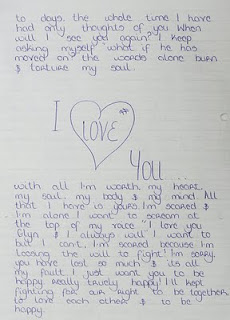 to days. the whole time I have
had only thoughts of you. When
will I see you again? I keep
asking myself "what if he has
moved on" the words alone burn
& torture my soul.
I LOVE
You...
with all I'm worth, my heart,
my soul, my body & my mind. All
that I have is yours. I'm scared &
I'm alone I want to scream at
the top of my voice "I love you
& I always will" I want to
but I can't. I'm scared because I'm
loosing the will to fight! I'm sorry,
you have lost so much & its all
my fault. I just want you to be
happy. Really truely happy! I'll kept
fighting for our right to be together,
to love each other & to be
happy.